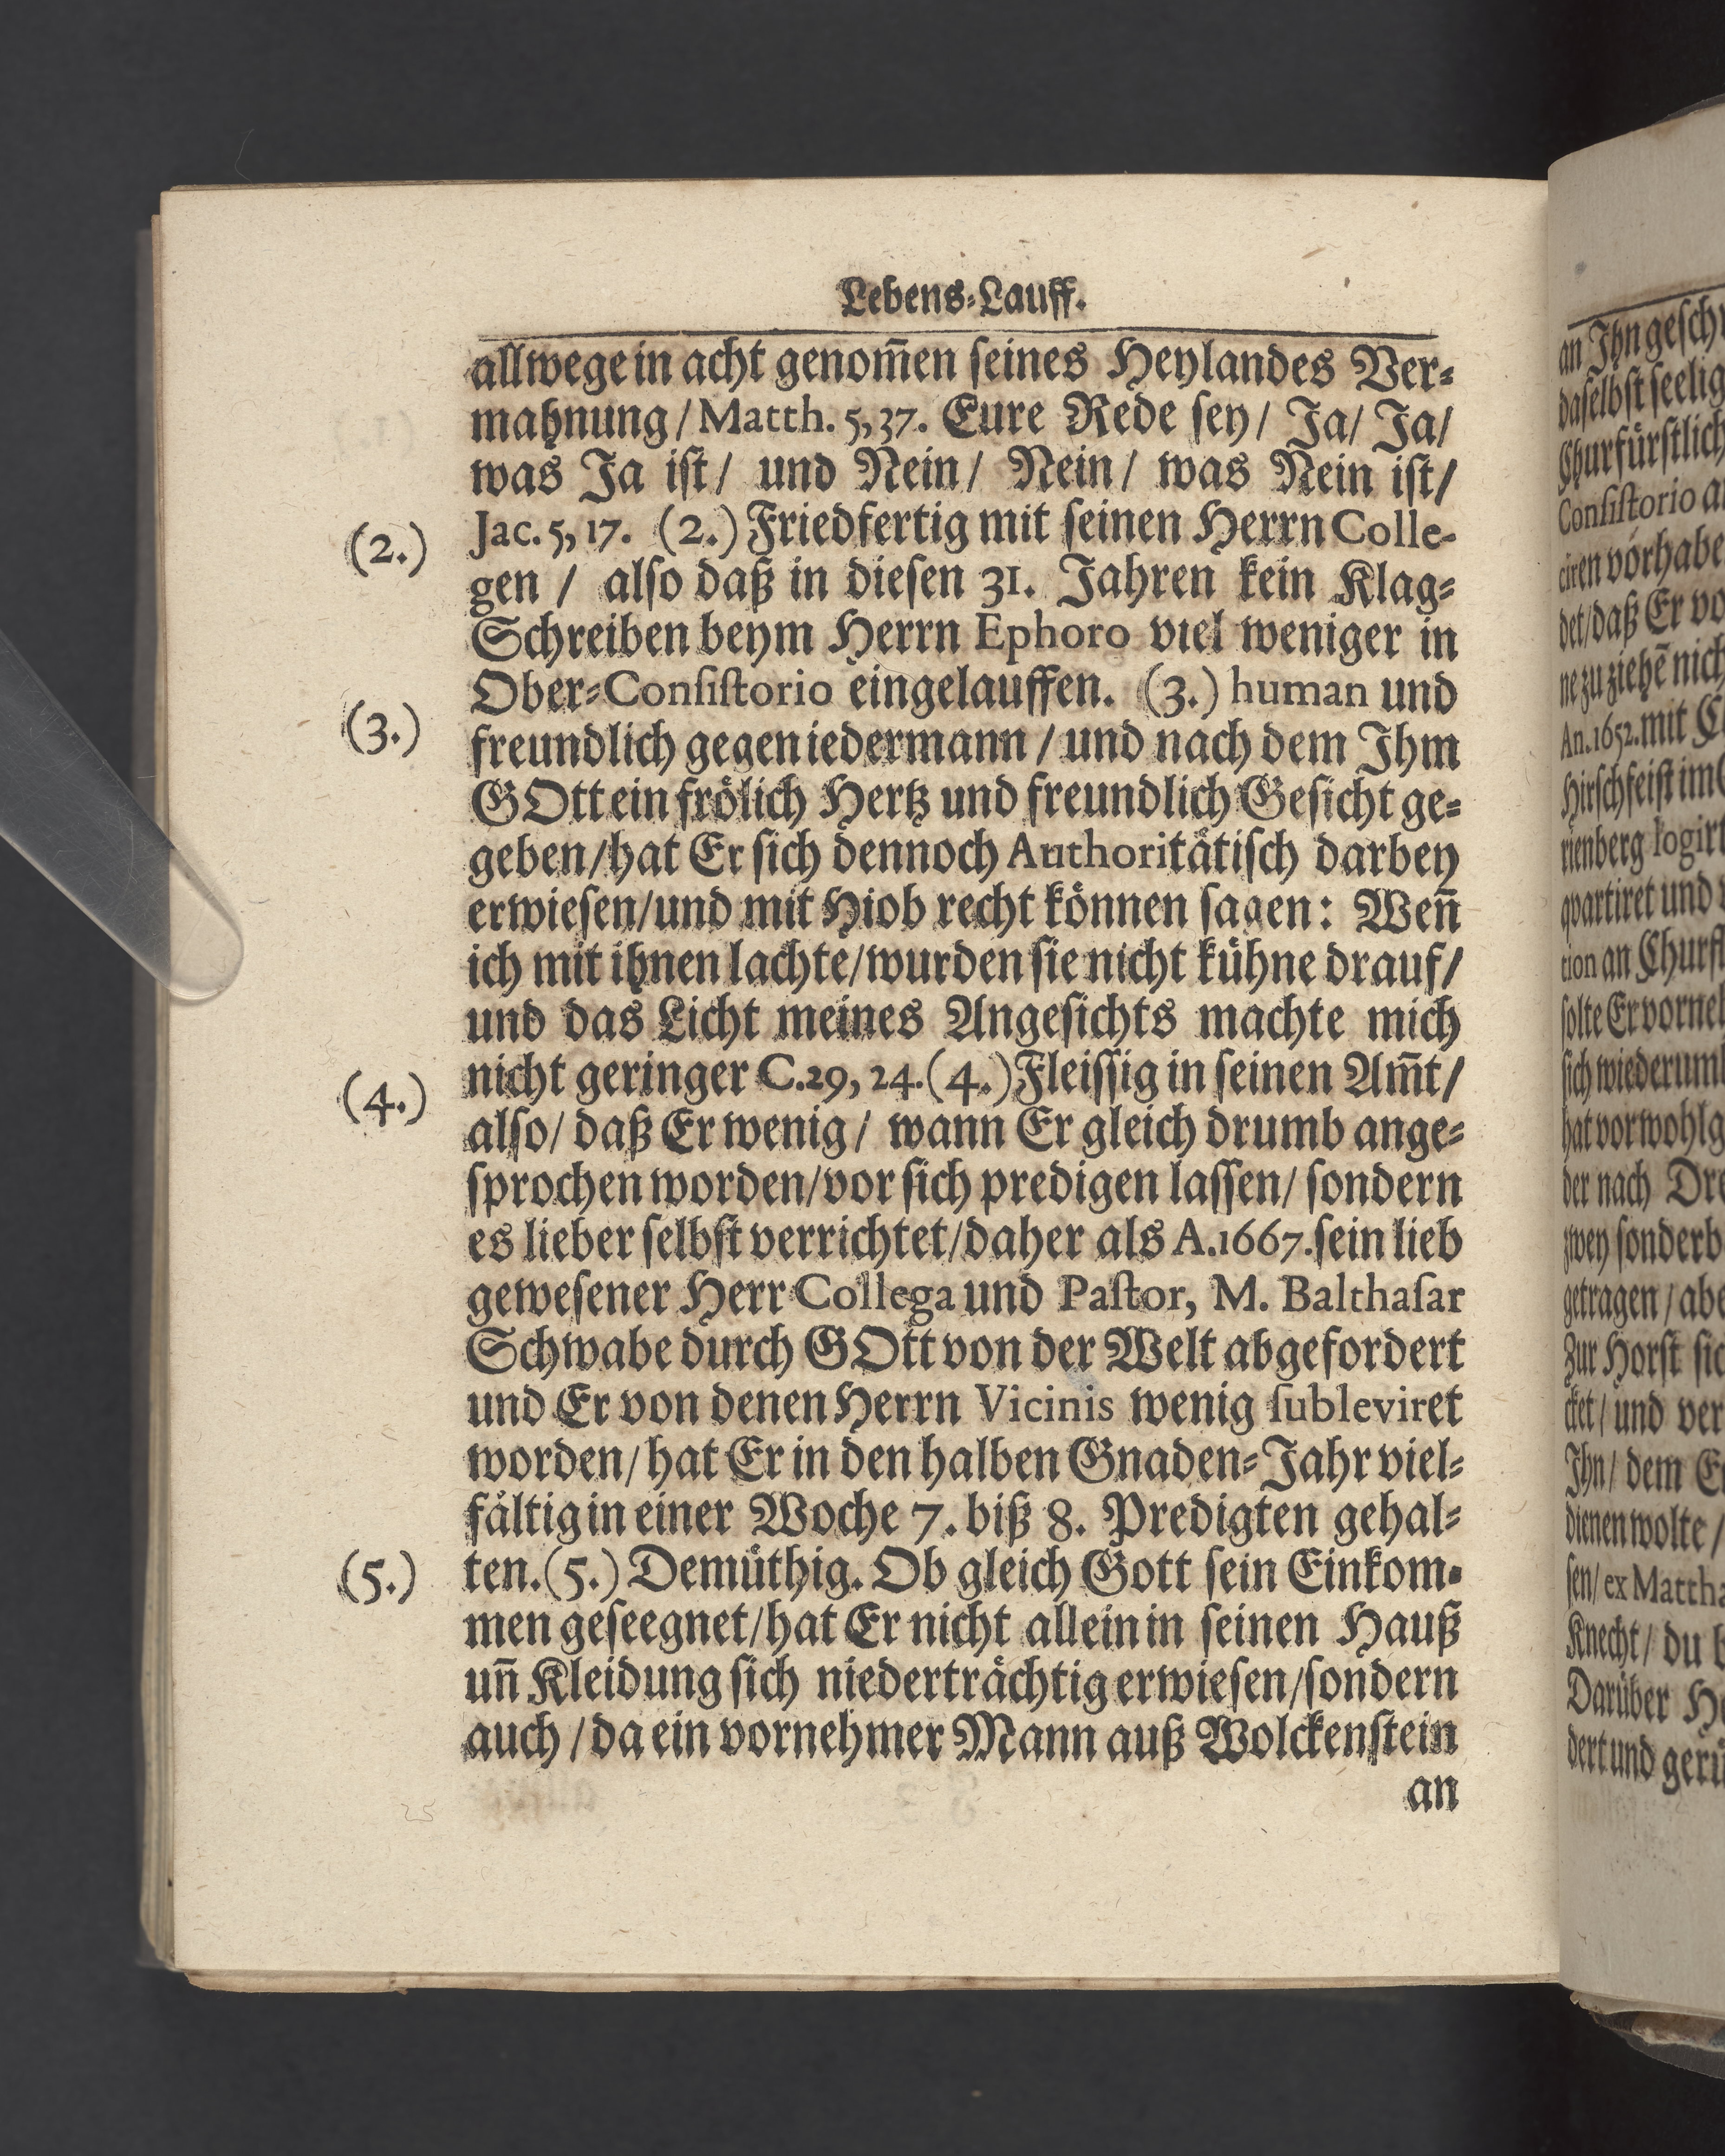 Lebens-Lauff.
allwege in acht genom̃en seines Heylandes Ver-
mahnung / Matth. 5, 37. Eure Rede sey / Ja / Ja /
was Ja ist / und Nein / Nein / was Nein ist /
(2.) Jac. 5, 17. (2.) Friedfertig mit seinen Herrn Colle-
gen / also daß in diesen 31. Jahren kein Klag-
Schreiben beym Herrn Ephoro viel weniger in
Ober-Consistorio eingelauffen. (3.) human und
(3.) freundlich gegen iedermann / und nach dem Ihm
GOtt ein frölich Hertz und freundlich Gesicht ge-
geben / hat Er sich dennoch Authoritätisch darbey
erwiesen / und mit Hiob recht können sagen: Wen̄
ich mit ihnen lachte / wurden sie nicht kühne drauf /
und das Licht meines Angesichts machte mich
nicht geringer C. 29, 24. (4.) Fleissig in seinen Am̃t /
(4.) also / daß Er wenig / wann Er gleich drumb ange-
sprochen worden / vor sich predigen lassen / sondern
es lieber selbst verrichtet / daher als A. 1667. sein lieb
gewesener Herr Collega und Pastor, M. Balthasar
Schwabe durch GOtt von der Welt abgefordert
und Er von denen Herrn Vicinis wenig subleviret
worden / hat Er in den halben Gnaden-Jahr viel-
fältig in einer Woche 7. biß 8. Predigten gehal-
(5.) ten. (5.) Demüthig. Ob gleich Gott sein Einkom-
men geseegnet / hat Er nicht allein in seinen Hauß
un̄ Kleidung sich niederträchtig erwiesen / sondern
auch / da ein vornehmer Mann auß Wolckenstein
an
25
an Ihn gesch
daselbst seelig
Churfürstlich
Consistorio a
ciren vorhabe
det / daß Er vo
ne zu ziehē nich
An. 1652. mit C
Hirschfeist im
rienberg logirt
qvartiret und
tion an Churf
solte Er vorne
sich wiederum
hat vor wohlg
der nach Dre
zwey sonderb
getragen / abe
Zur Horst sic
cket / und ver
Ihn / dem E
dienen wolte /
sen / ex Matthæ
Knecht / du
Darüber H
dert und gerü